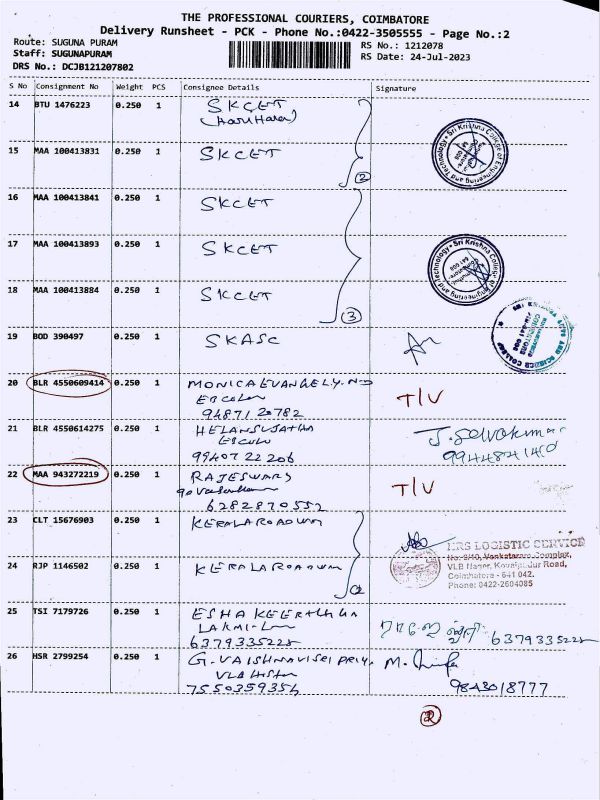 THE PROFESSIONAL COURIERS, COIMBATORE
Delivery Runsheet - PCK - Phone No.:0422-3505555 - Page No.:2
Route: SUGUNA PURAM
Staff: SUGUNAPURAM
DRS No.: DCJB121207802
RS No.: 1212078
RS Date: 24-Jul-2023
S No Consignment No Weight PCS Consignee Details Signature
14 BTU 1476223 0.250 1 SKCET
(Hari Haran)
15 MAA 100413831 0.250 1 SKCET
2
16 MAA 100413841 0.250 1 SKCET
17 MAA 100413893 0.250 1 SKCET
18 MAA 100413884 0.250 1 SKCET
3
Sri Krishna College of Engineering and Technology
Sri Krishna College of Engineering and Technology
19 BOD 390497 0.250 1 SKASC
20 BLR 4550609414 0.250 1 MONICA EVANGELY.
94871 20782
T/V
21 BLR 4550614275 0.250 1 HELANSUJATHA
99407 22206
22 MAA 943272219 0.250 1 RAJESWARI
6282870552
T/V
23 CLT 15676903 0.250 1 KERALA ROADWAY
24 RJP 1146502 0.250 1 KERALA ROADWAY
2
LOGISTIC SERVICE
VLB Nagar, Road,
Coimbatore - 641 042.
Phone: 0422-2604085
25 TSI 7179726 0.250 1 ESHA KEERTHANA
6379335228
6379335228
26 HSR 2799254 0.250 1 G. VAISHNAVI SRI PRIYA
7550359354
M.
9843018777